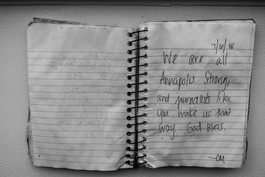 7/6/18
We are all
Annapolis Strong,
and journalists like
you make us that
way. God bless.